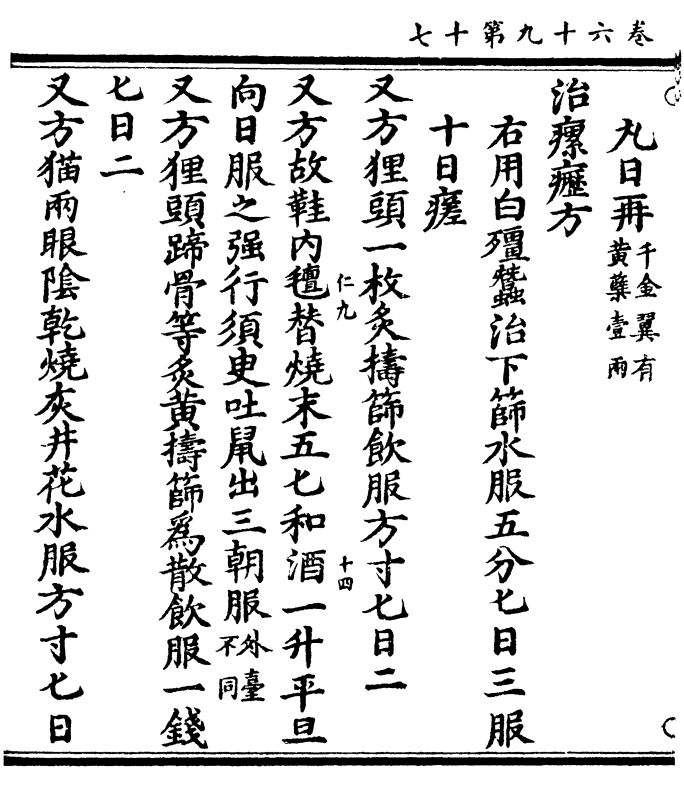 卷六十九第十七
丸日再千金翼有黃蘗壹兩
治瘰癧方
右用白殭蠶治下篩水服五分匕日三服
十日瘥
又方狸頭一枚炙擣篩飲服方寸匕日二
仁九
十四
又方故鞋內氊替燒末五匕和酒一升平旦
向日服之强行須臾吐鼠出三朝服外臺不同
又方狸頭蹄骨等炙黃擣篩爲散飲服一錢
匕日二
又方猫兩眼陰乾燒灰井花水服方寸匕日